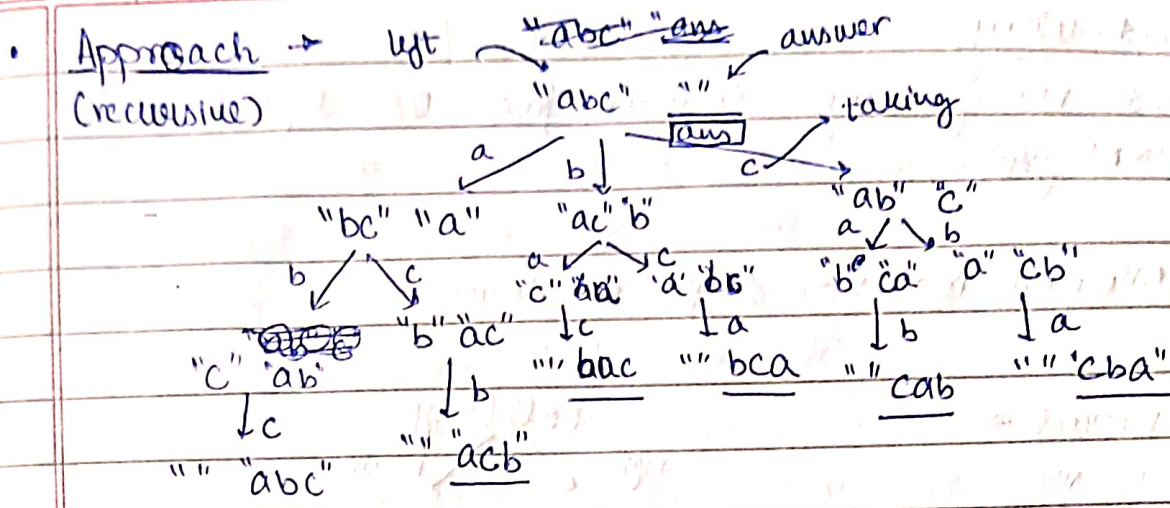 • Approach → left "abc" "ans answer
(recursive) "abc" ""
ans taking
a b c
"bc" "a" "ac" "b" "ab" "c"
b c a c a b
"c" "ba" "a" "bc" "b" "ca" "a" "cb"
"b" "ac" c a b a
"c" "ab" b "" bac "" bca "" cab "" "cba"
c
"" "acb"
"" "abc"